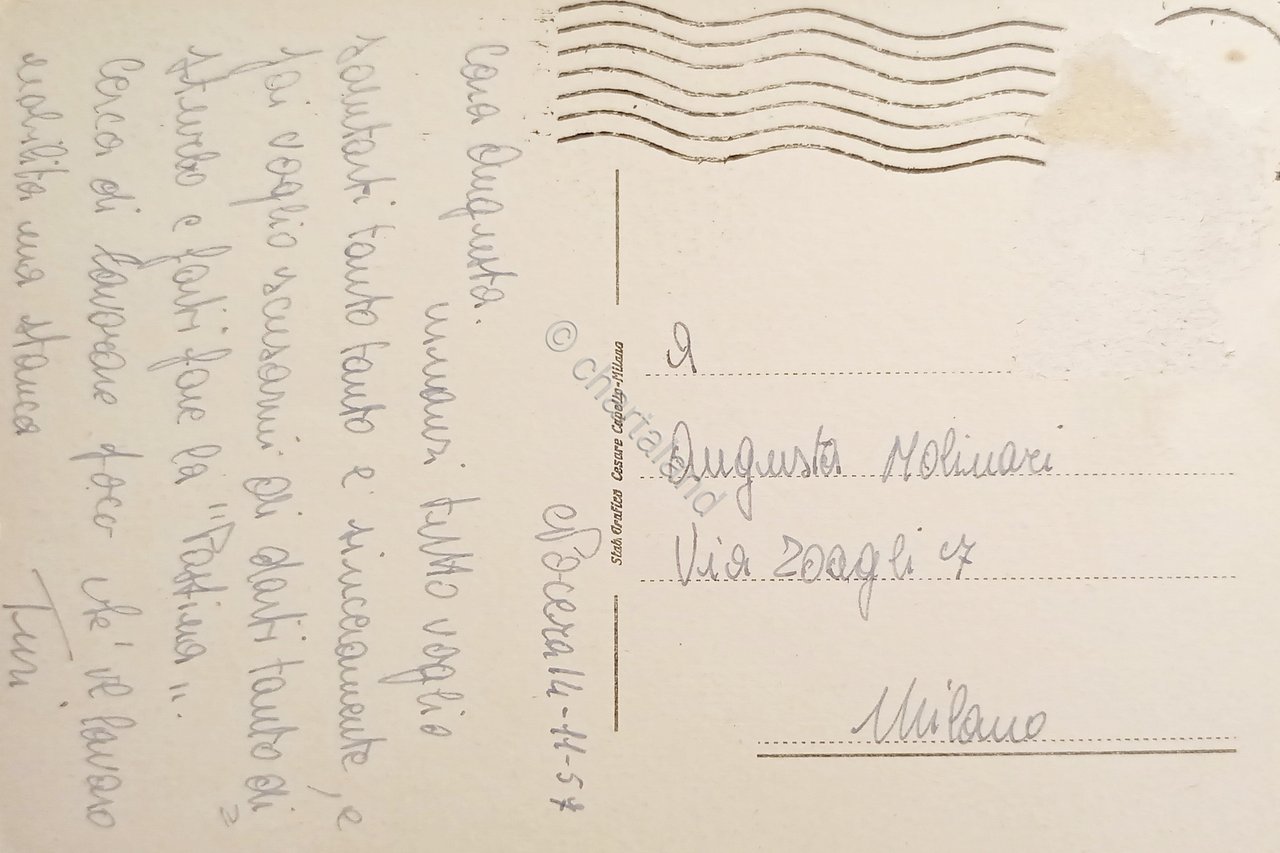 Nocera 14-11-57
Cara Augusta.
innanzi tutto voglio
salutarti tanto tanto e sinceramente, e
poi voglio scusarmi di darti tanto di
e farti fare la "Pattina".
Cerca di lavorare poco che il lavoro
nobilita ma stanca
Turi
Stab. Grafico Cesare Capello-Milano
A
Augusta Molinari
Via Zoagli 7
Milano
© chartaland